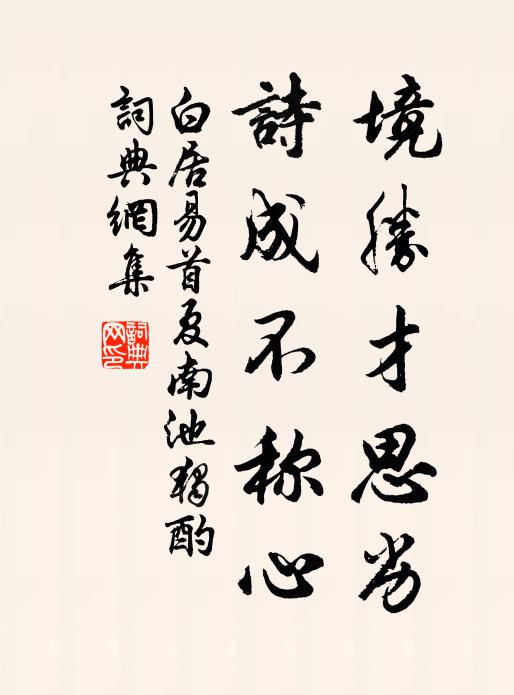 境勝才思劣
詩成不称心
白居易首夏南池獨酌
詞典網集
詞典网印